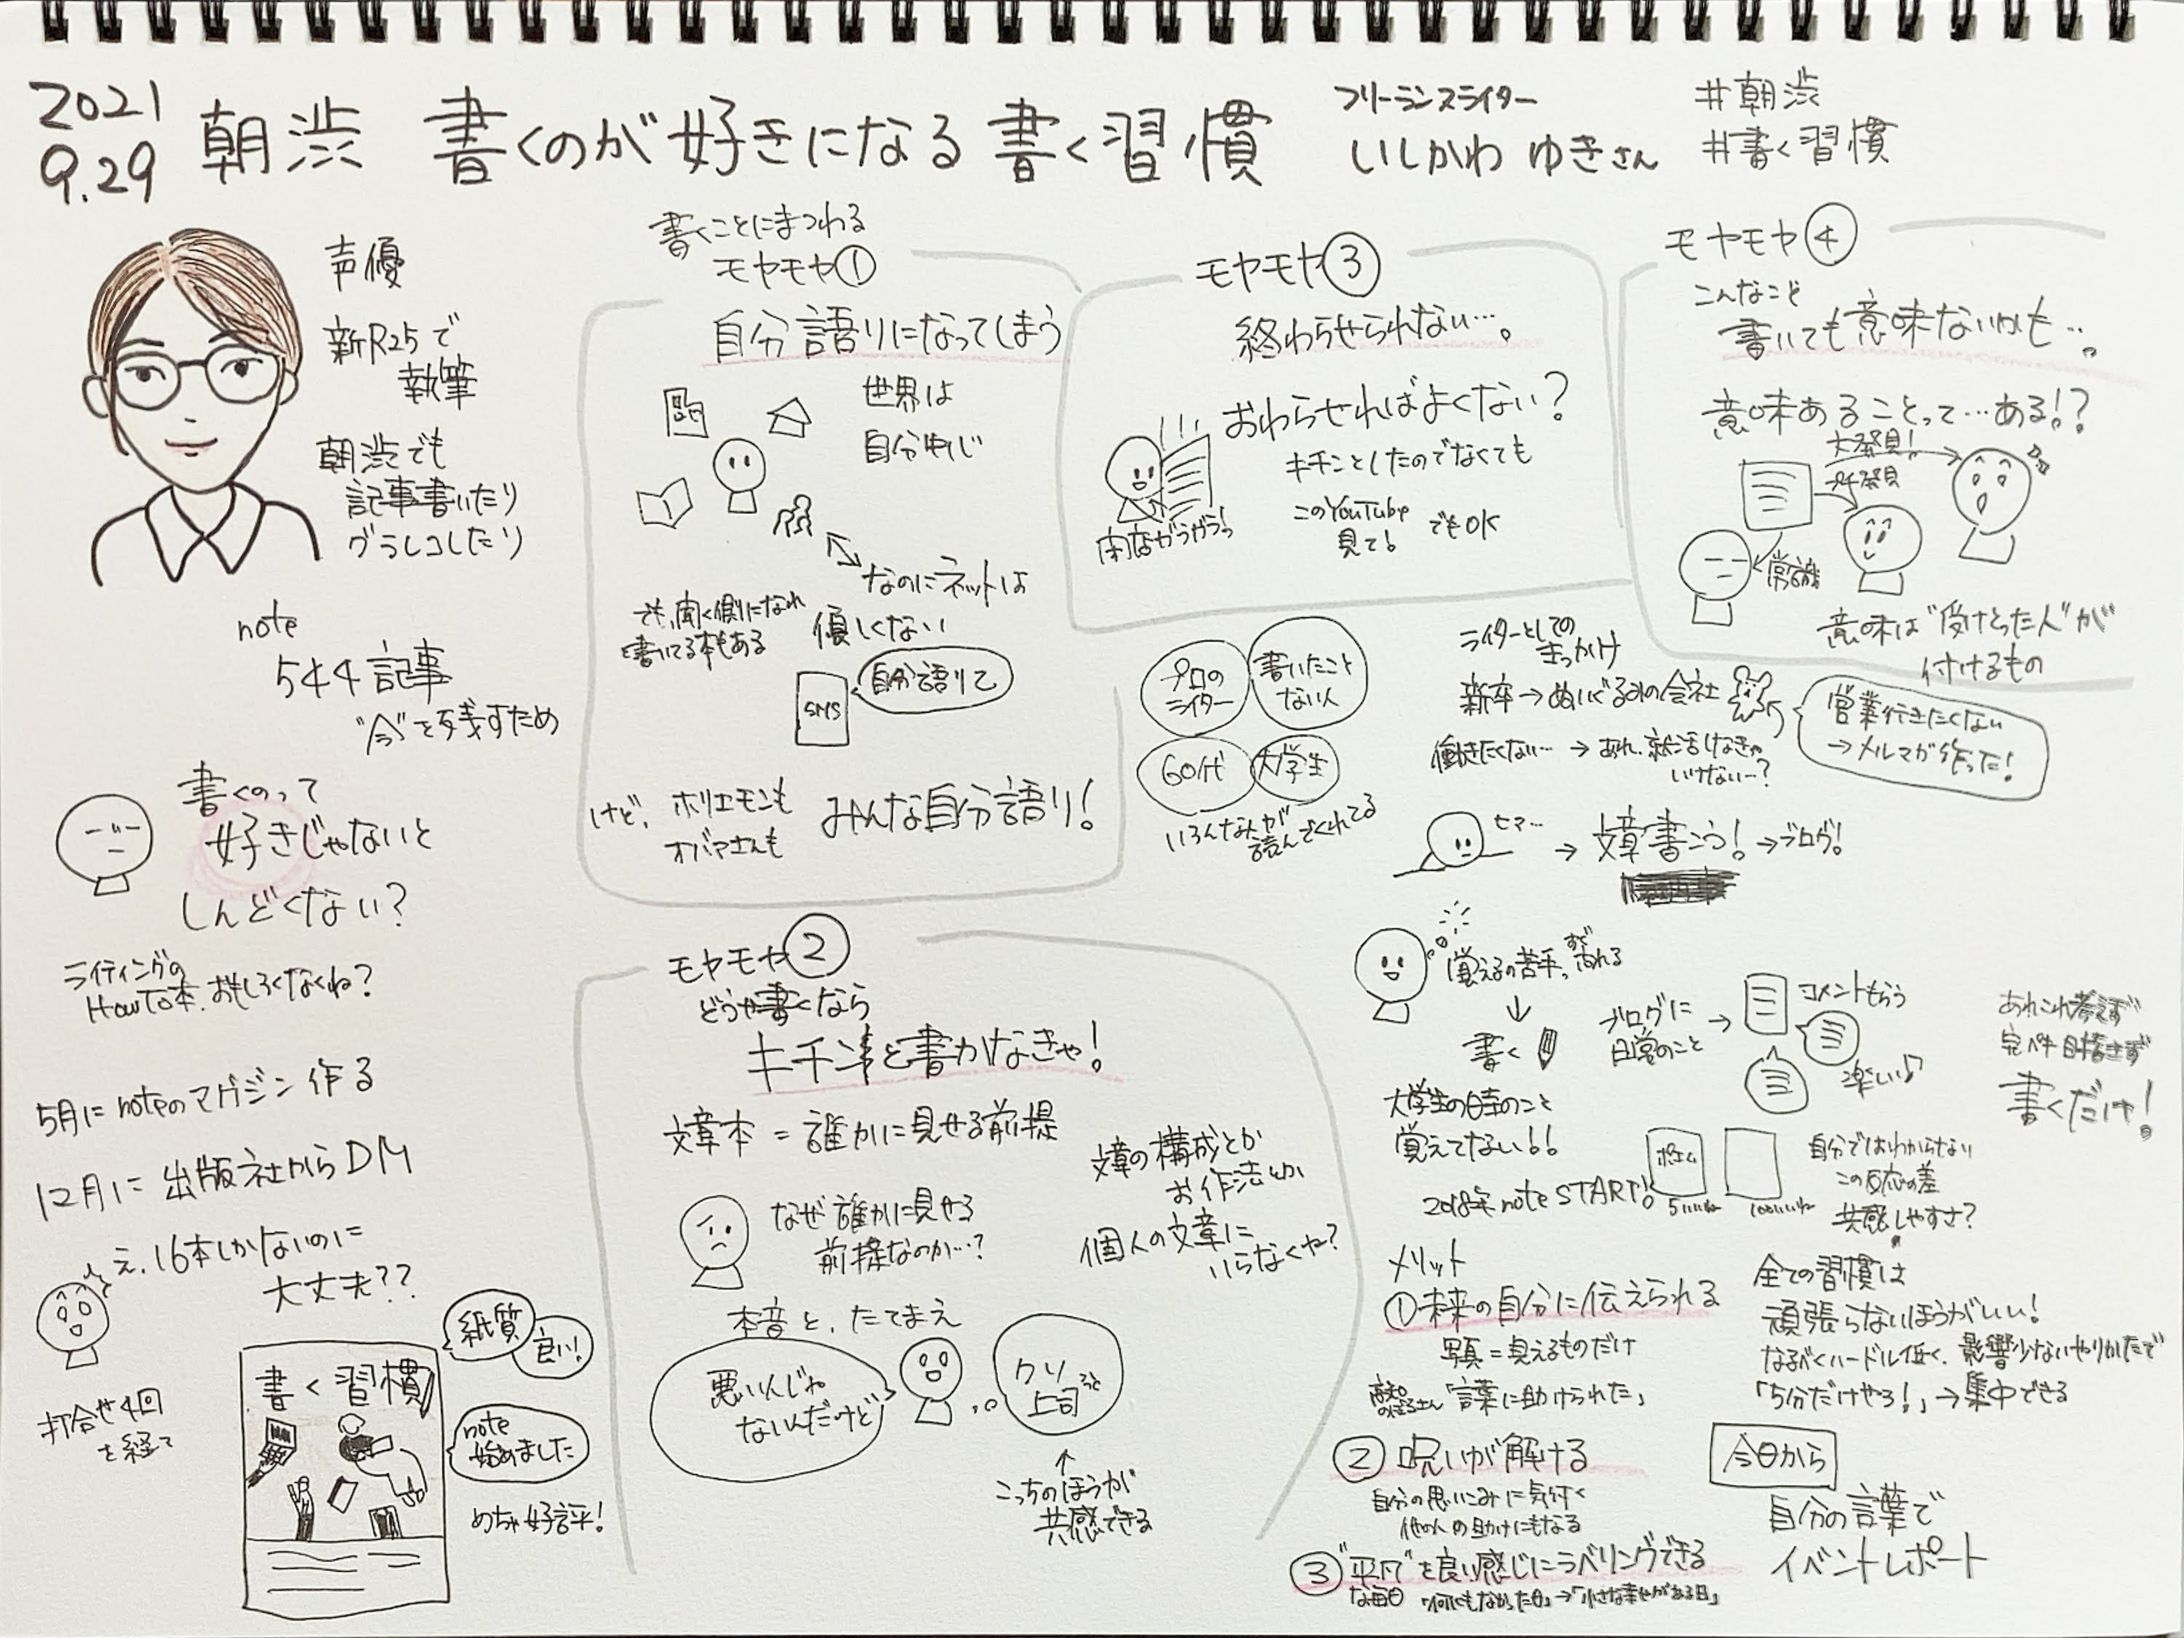 2021
9.29
朝渋 書くのが好きになる書く習慣
フリーランスライター
いしかわ ゆきさん
#朝渋
#書く習慣
声優
新R25で
執筆
朝渋でも
記事書いたり
グラレコしたり
note
544記事
"今"を残すため
書くのって
好きじゃないと
しんどくない?
ライティングの
HowTo本、おもしろくなくね?
5月にnoteのマガジン作る
12月に出版社からDM
え、16本しかないのに
大丈夫??
打合せ4回
を経て
書く習慣
紙質
良い!
note
始めました
めちゃ好評!
書くことにまつわる
モヤモヤ①
自分語りになってしまう
世界は
自分中心
なのにネットは
優しくない
でも、聞く側になれ
と書いてる本もある
SNS
自分語り乙
けど、ホリエモンも
オバマさんも
みんな自分語り!
モヤモヤ②
どうせ書くなら
キチンと書かなきゃ!
文章本=誰かに見せる前提
なぜ誰かに見せる
前提なのか…?
文章の構成とか
お作法とか
個人の文章に
いらなくね?
本音と、たてまえ
悪い人じゃ
ないんだけど
クソ
上司
↑
こっちのほうが
共感できる
モヤモヤ③
終わらせられない…。
おわらせればよくない?
キチンとしたのでなくても
このYouTube
見て!
でもOK
閉店ガラガラっ
モヤモヤ④
こんなこと
書いても意味ないかも…。
意味あることって…ある!?
大発見!
再発見
常識
意味は"受けとった人"が
付けるもの
プロの
ライター
書いたこと
ない人
60代
大学生
いろんな人が
読んでくれてる
ライターとしての
きっかけ
新卒→ぬいぐるみの会社
営業行きたくない
→メルマガ作った!
働きたくない…→あれ、就活しなきゃ
いけない…?
ヒマ…
→文章書こう!→ブログ!
覚えるの苦手。すぐ忘れる
↓
書く
ブログに
日常のこと
→
コメントもらう
楽しい♪
あれこれ考えず
完ペキ目指さず
書くだけ!
大学生の時のこと
覚えてない!!
2018年 note START!
ポエム
5いいね
100いいね
自分ではわからない
この反応の差
共感しやすさ?
メリット
①未来の自分に伝えられる
写真=見えるものだけ
「言葉に助けられた」
②呪いが解ける
自分の思いこみに気付く
他の人の助けにもなる
③"平凡"を良い感じにラベリングできる
な毎日
「何にもなかった日」→「小さな幸せがある日」
全ての習慣は
頑張らないほうがいい!
なるべくハードル低く、影響少ないやりかたで
「5分だけやろ!」→集中できる
今日から
自分の言葉で
イベントレポート